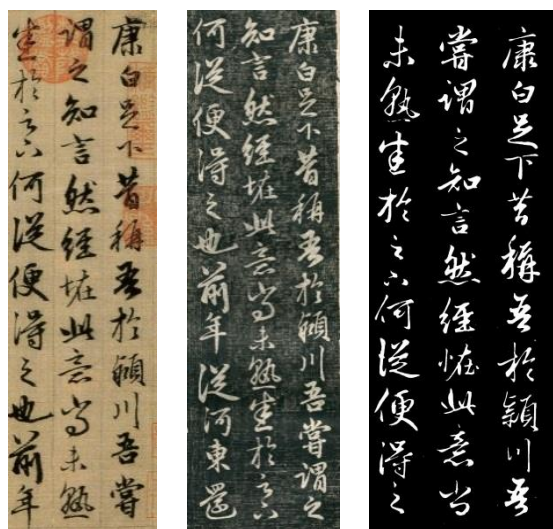 康白足下昔稱吾於潁川吾嘗
謂之知言然經恠此意尚未熟
悉於足下何從便得之也前年
康白足下昔稱吾於潁川吾嘗謂之
知言然經恠此意尚未熟悉於足下
何從便得之也前年從河東還
康白足下昔稱吾於潁川吾
嘗謂之知言然經恠此意尚
未熟悉於足下何從便得之